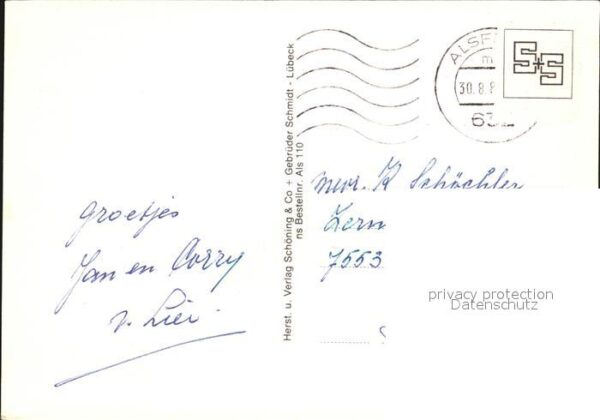 groetjes
Jan en Corry
v. Lier.
Herst. u. Verlag Schöning & Co + Gebrüder Schmidt - Lübeck
ns Bestellnr. Als 110
ALSF
m
30.8.8
632
S+S
K Schöchler
7553
privacy protection
Datenschutz